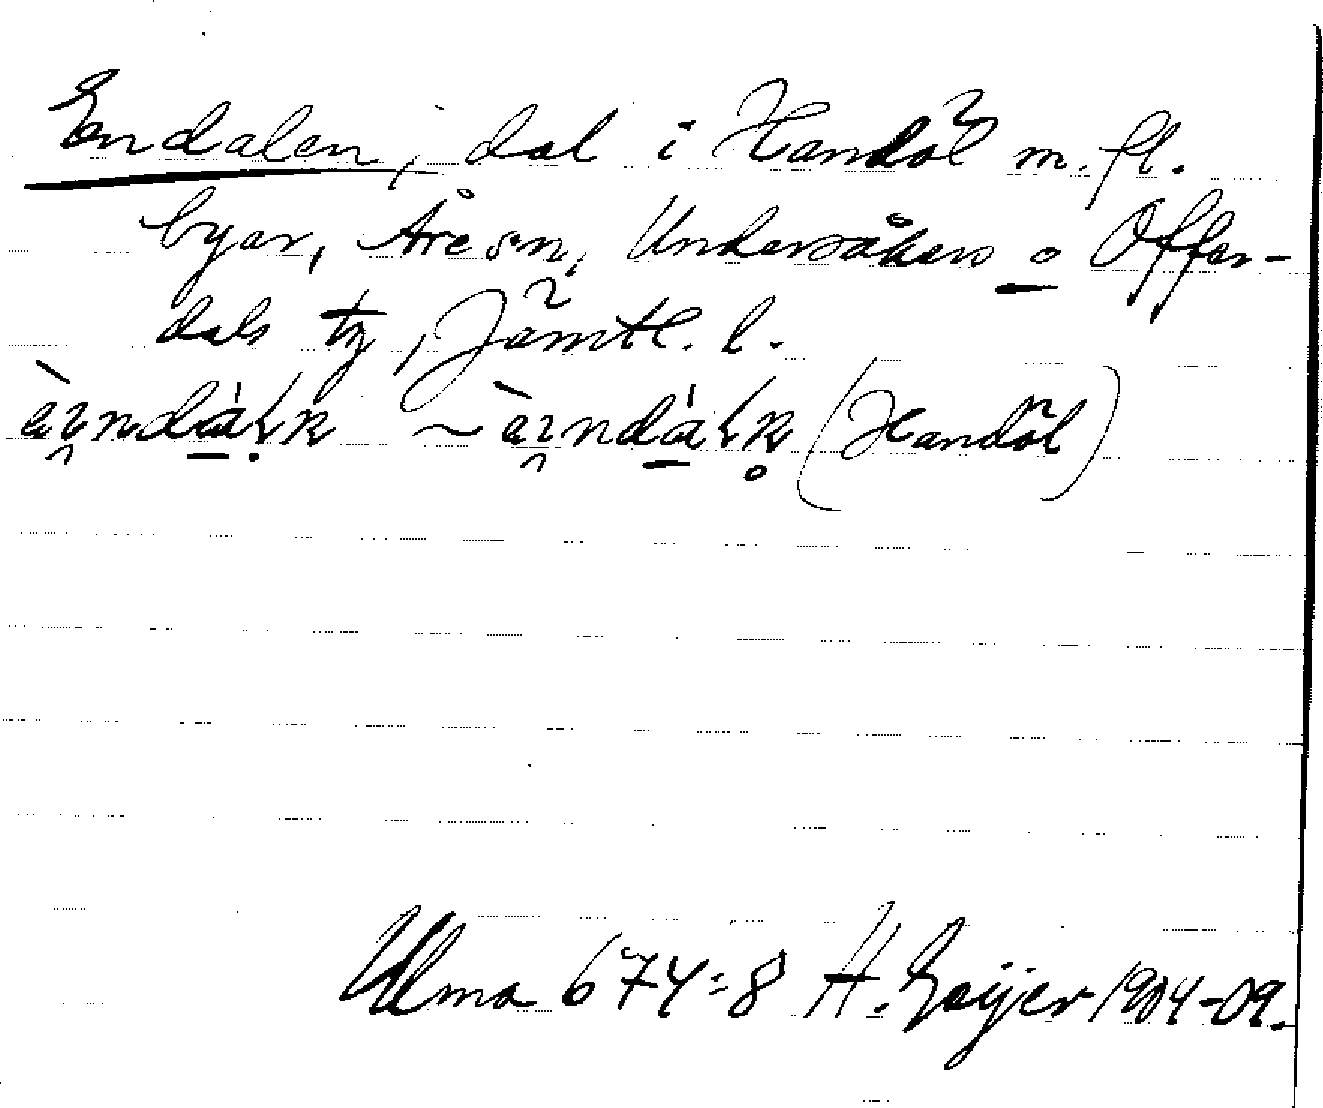 Endalen, dal i Handöl m. fl.
byar, Åre sn, Undersåkers o Offer-
dals tg, Jämtl. l.
~ (Handöl)
Ulma 674:8 H. Geijer 1904-09.